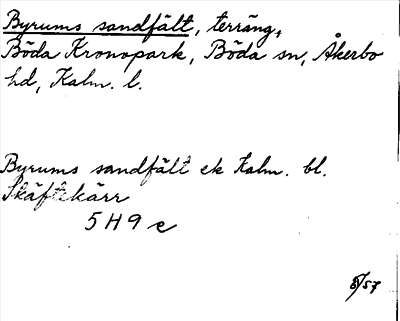 Byrums sandfält, terräng,
Böda Kronopark, Böda sn, Åkerbo
hd, Kalm. l.
Byrums sandfält ek Kalm. bl.
Skäftekärr
5H9e
8/57